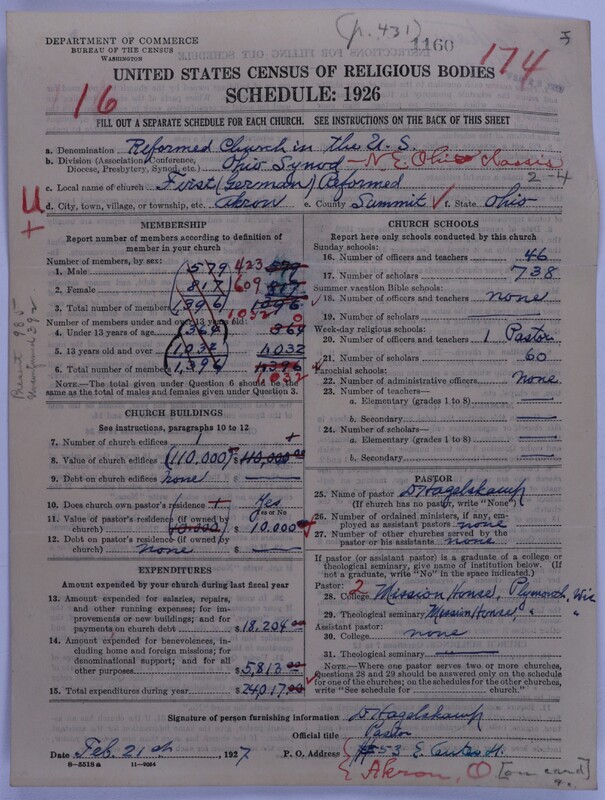 (p. 431)
1160
174
DEPARTMENT OF COMMERCE
BUREAU OF THE CENSUS
WASHINGTON
UNITED STATES CENSUS OF RELIGIOUS BODIES
16
SCHEDULE: 1926
FILL OUT A SEPARATE SCHEDULE FOR EACH CHURCH. SEE INSTRUCTIONS ON THE BACK OF THIS SHEET
a. Denomination Reformed Church in the U.S.
b. Division (Association, Conference, Diocese, Presbytery, Synod, etc.) Ohio Synod - N E Ohio Classis
2-4
c. Local name of church First (German) Reformed
d. City, town, village, or township, etc. Akron e. County Summit f. State Ohio
U
+
MEMBERSHIP
Report number of members according to definition of
member in your church
Number of members, by sex:
1. Male (579 423 579
2. Female 817 609 817
3. Total number of members 1396) 1032 1396
Number of members under and over 13 years old:
4. Under 13 years of age (364) 0 364
5. 13 years old and over (1032) 1032
6. Total number of members 1,396 1396 1032
NOTE.—The total given under Question 6 should be the
same as the total of males and females given under Question 3.
CHURCH BUILDINGS
See instructions, paragraphs 10 to 12
7. Number of church edifices 1
8. Value of church edifices (110,000) $ 110,000.00
9. Debt on church edifices none $
10. Does church own pastor's residence? Yes
Yes or No
11. Value of pastor's residence (if owned by
church) (10.000) $ 10.000
12. Debt on pastor's residence (if owned by
church) none $
EXPENDITURES
Amount expended by your church during last fiscal year
13. Amount expended for salaries, repairs,
and other running expenses; for im-
provements or new buildings; and for
payments on church debt $18.204.00
14. Amount expended for benevolences, in-
cluding home and foreign missions; for
denominational support; and for all
other purposes $5,813.00
15. Total expenditures during year $24017.00
CHURCH SCHOOLS
Report here only schools conducted by this church
Sunday schools:
16. Number of officers and teachers 46
17. Number of scholars 738
Summer vacation Bible schools:
18. Number of officers and teachers none
19. Number of scholars
Week-day religious schools:
20. Number of officers and teachers 1 Pastor
21. Number of scholars 60
Parochial schools:
22. Number of administrative officers none
23. Number of teachers—
a. Elementary (grades 1 to 8)
b. Secondary
24. Number of scholars—
a. Elementary (grades 1 to 8)
b. Secondary
PASTOR
25. Name of pastor D Hagelskamp
(If church has no pastor, write "None")
26. Number of ordained ministers, if any, em-
ployed as assistant pastors none
27. Number of other churches served by the
pastor or his assistants none
If pastor (or assistant pastor) is a graduate of a college or
theological seminary, give name of institution below. (If
not a graduate, write "No" in the space indicated.)
Pastor: 2
28. College Mission House, Plymouth, Wis
29. Theological seminary Mission House, " "
Assistant pastor:
30. College none
31. Theological seminary
NOTE.—Where one pastor serves two or more churches,
Questions 28 and 29 should be answered only on the schedule
for one of the churches; on the schedules for the other churches,
write "See schedule for church."
Signature of person furnishing information D Hagelskamp
Official title Pastor
Date Feb. 21st, 1927 P. O. Address 553 E
8-5518 a 11-9084
Akron, O [on card]